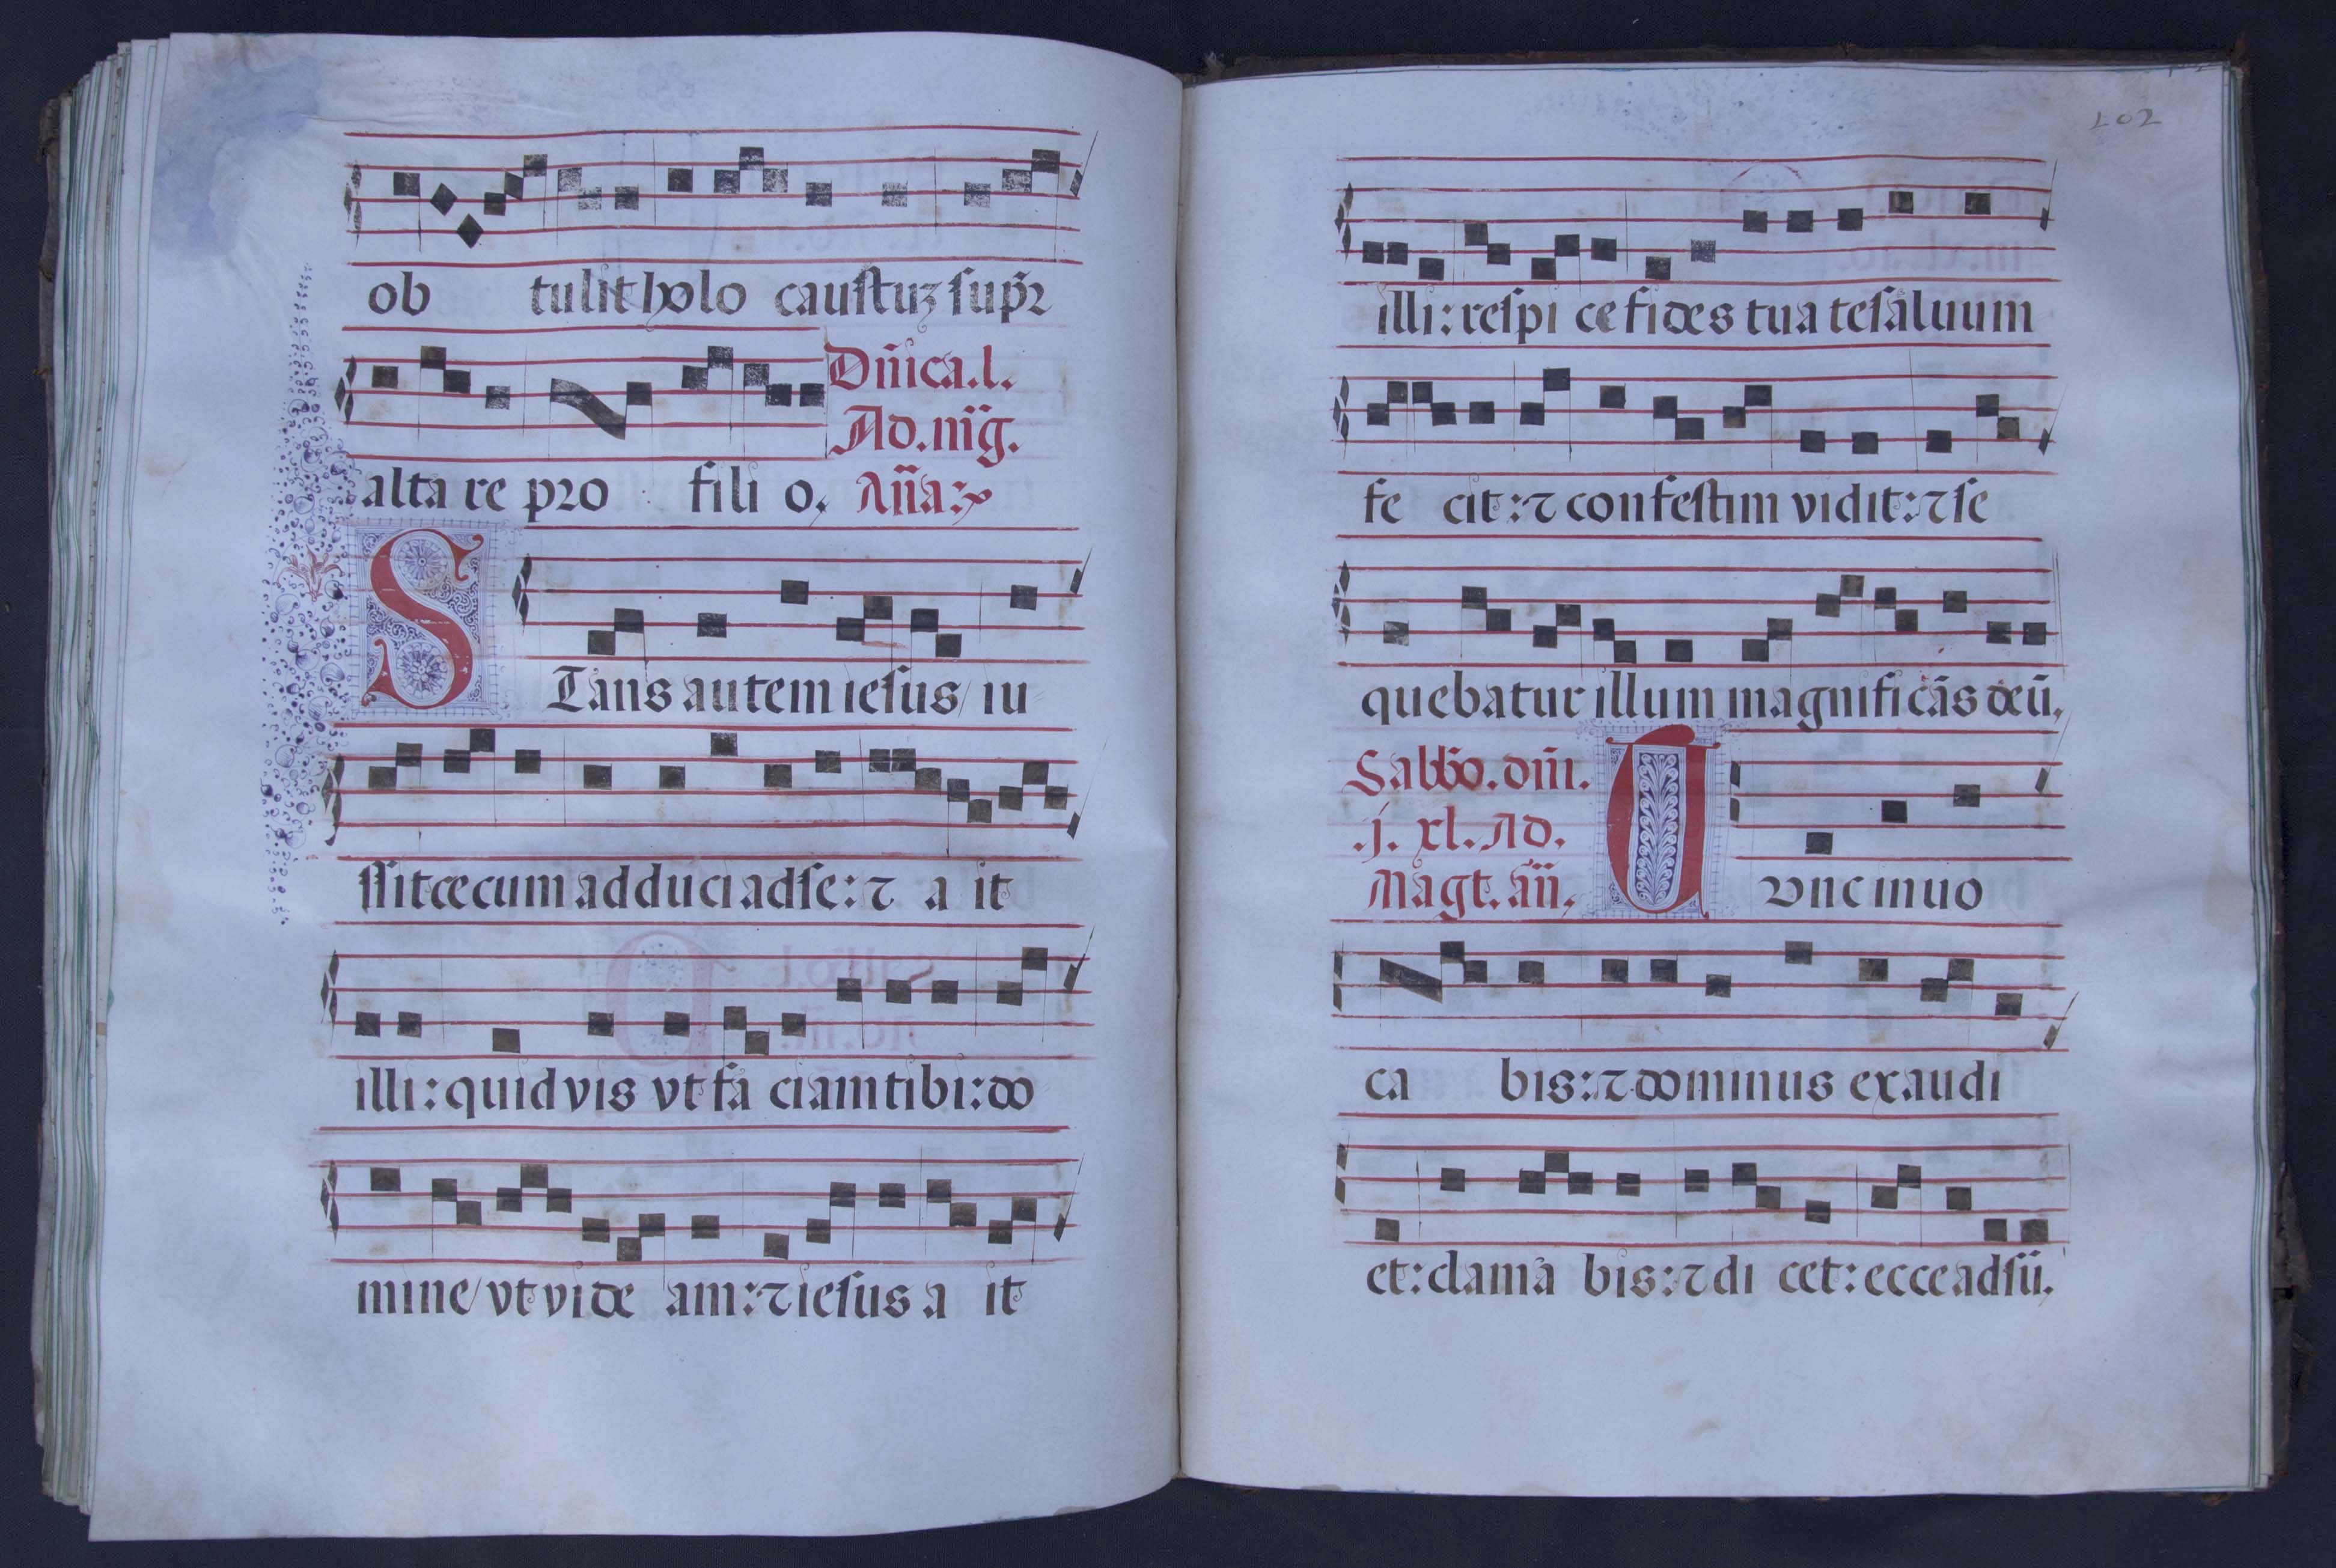 ob tulit holo caustuȝ sup̄r
Dñica.l.
Ad.m̄g.
alta re pro fili o, Añа:
STans autem iesus/ iu
ssit cecum adduci ad se: ⁊ a it
illi: quid vis vt fa ciam tibi: do
mine/ vt vide am: ⁊ iesus a it
102
illi: respi ce fides tua te saluum
fe cit: ⁊ confestim vidit: ⁊ se
quebatur illum magnificās deū.
Sabbo. dñi.
.j. xl. Ad.
Magt. añ.
Tunc inuo
ca bis: ⁊ dominus exaudi
et: clama bis: ⁊ di cet: ecce adsū.